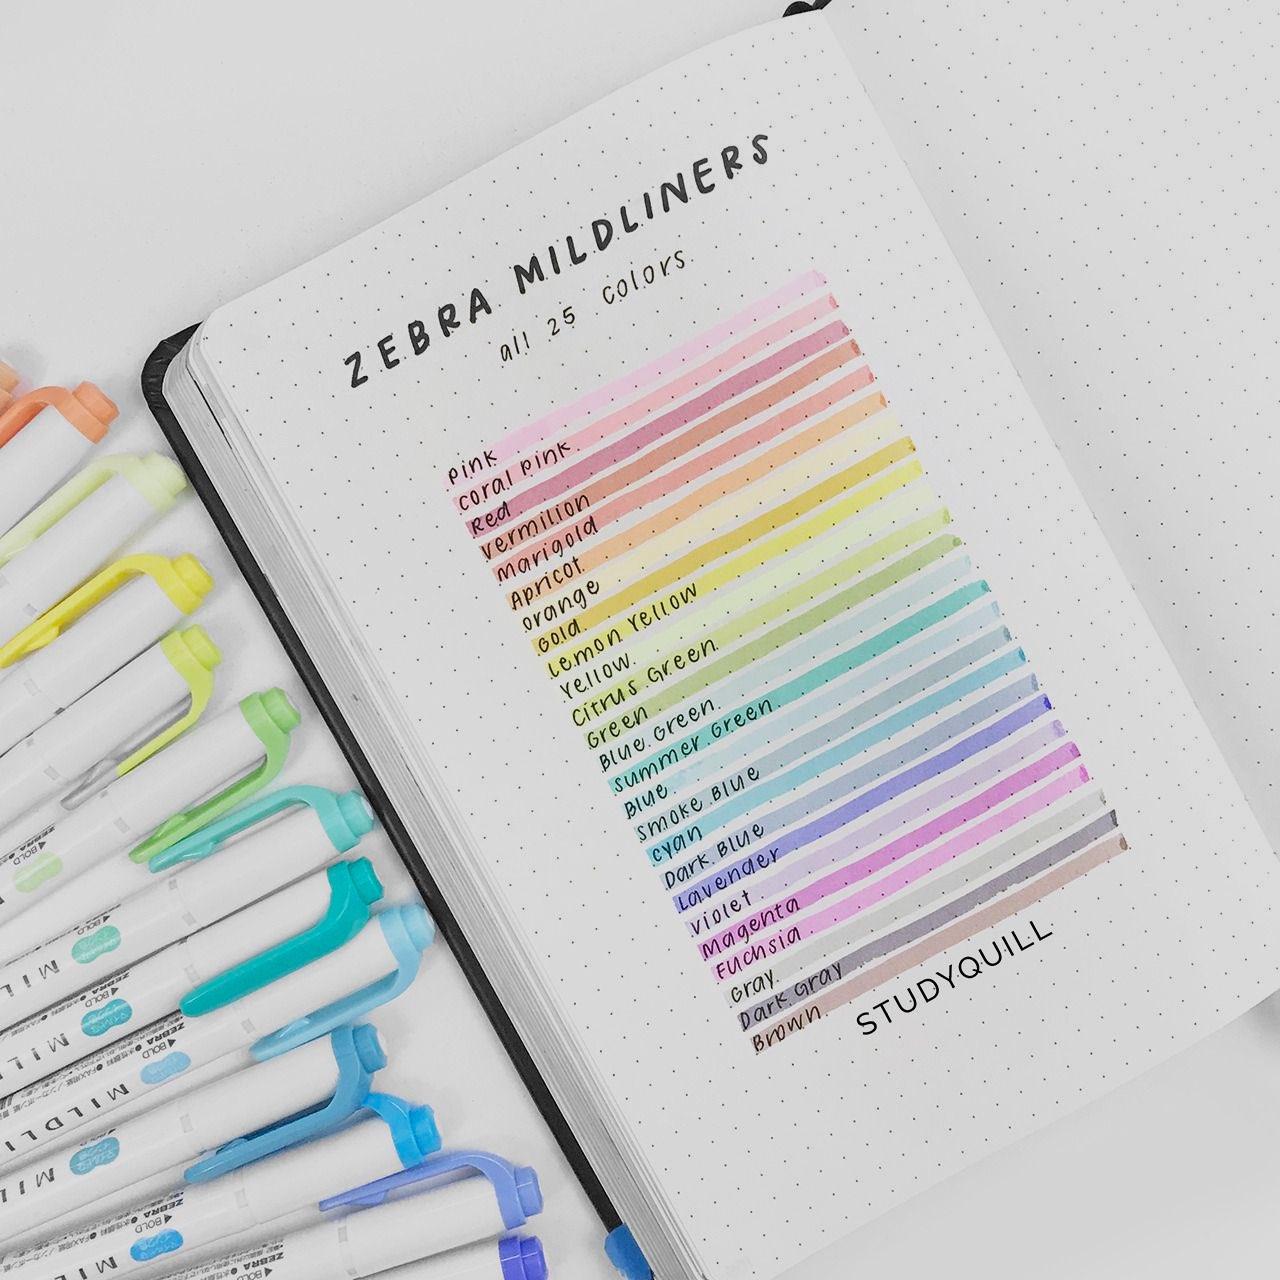 ZEBRA MILDLINERS
all 25 colors
Pink
Coral Pink
Red
Vermilion
Marigold
Apricot
Orange
Gold
Lemon Yellow
Yellow
Citrus Green
Green
Blue Green
Summer Green
Blue
Smoke Blue
Cyan
Dark Blue
Lavender
Violet
Magenta
Fuchsia
Gray
Dark Gray
Brown
STUDYQUILL
ZEBRA
BOLD
BOLD
MIL
ZEBRA
BOLD
MIL
ZEBRA
BOLD
MILDLI
BOLD
MIL
ZEBRA
BOLD
MIL
ZEBRA
BOLD